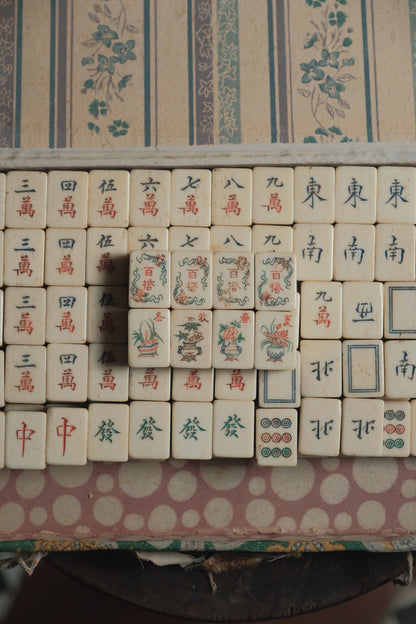 三萬 四萬 伍萬 六萬 七萬 八萬 九萬 東 東 東
三萬 四萬 伍萬 六 七 八 九 南 南 南
百搭 百搭 百搭 百搭
三萬 四萬 伍萬 九萬 西
冬 秋 春 夏
三萬 四萬 伍萬 萬 萬 萬 北 西
中 中 發 發 發 發 北 北